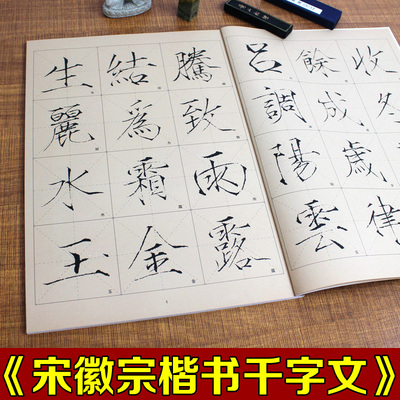 收冬
餘成歲律
呂調陽雲
騰致雨露
結爲霜金
生麗水玉
《宋徽宗楷书千字文》